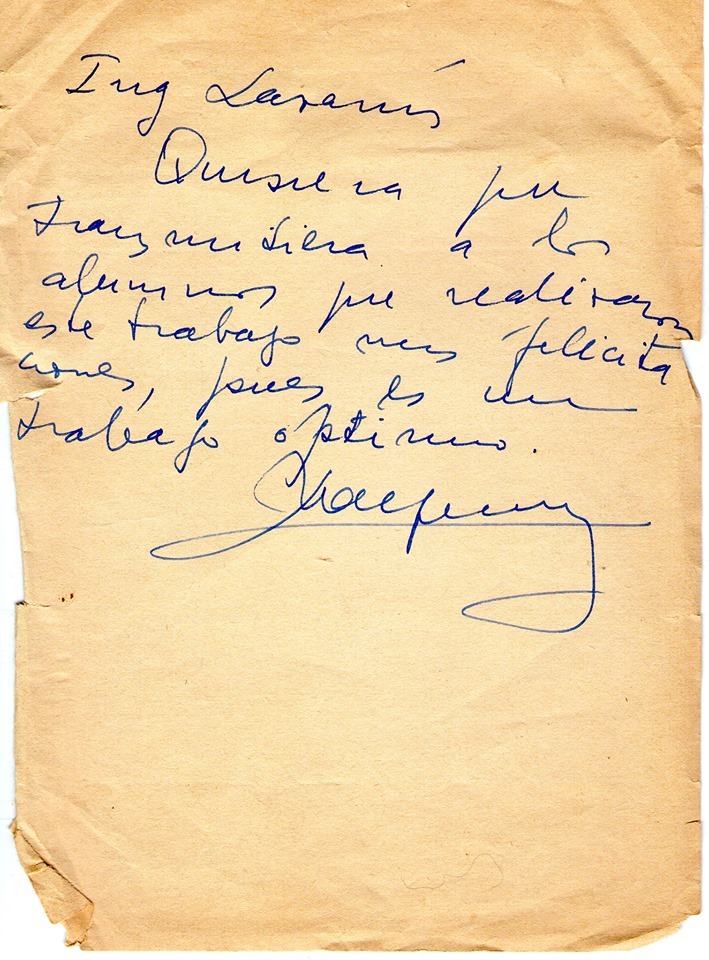 Ing
Quisiera que
transmitiera a los
alumnos que realizaron
este trabajo mis felicita
ciones, pues es un
trabajo óptimo.